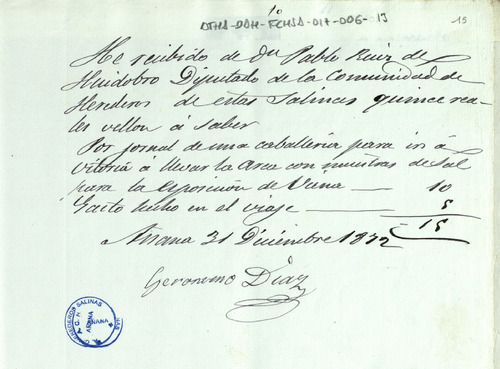 10
DTHA-DAH-FCHSA-017-006-13
15
He recibido de Dn Pablo Ruiz de
Huidobro Diputado de la Comunidad de
Herederos de estas Salinas quince rea-
les vellon á saber
Por jornal de una caballeria para ir á
Vitoria á llevar la arca con muestras de Sal
para la exposición de Viena — 10
Gasto hecho en el viage — 5
15
Añana 21 Diciembre 1872
Geronimo Diaz
HEREDEROS SALINAS
AÑANA